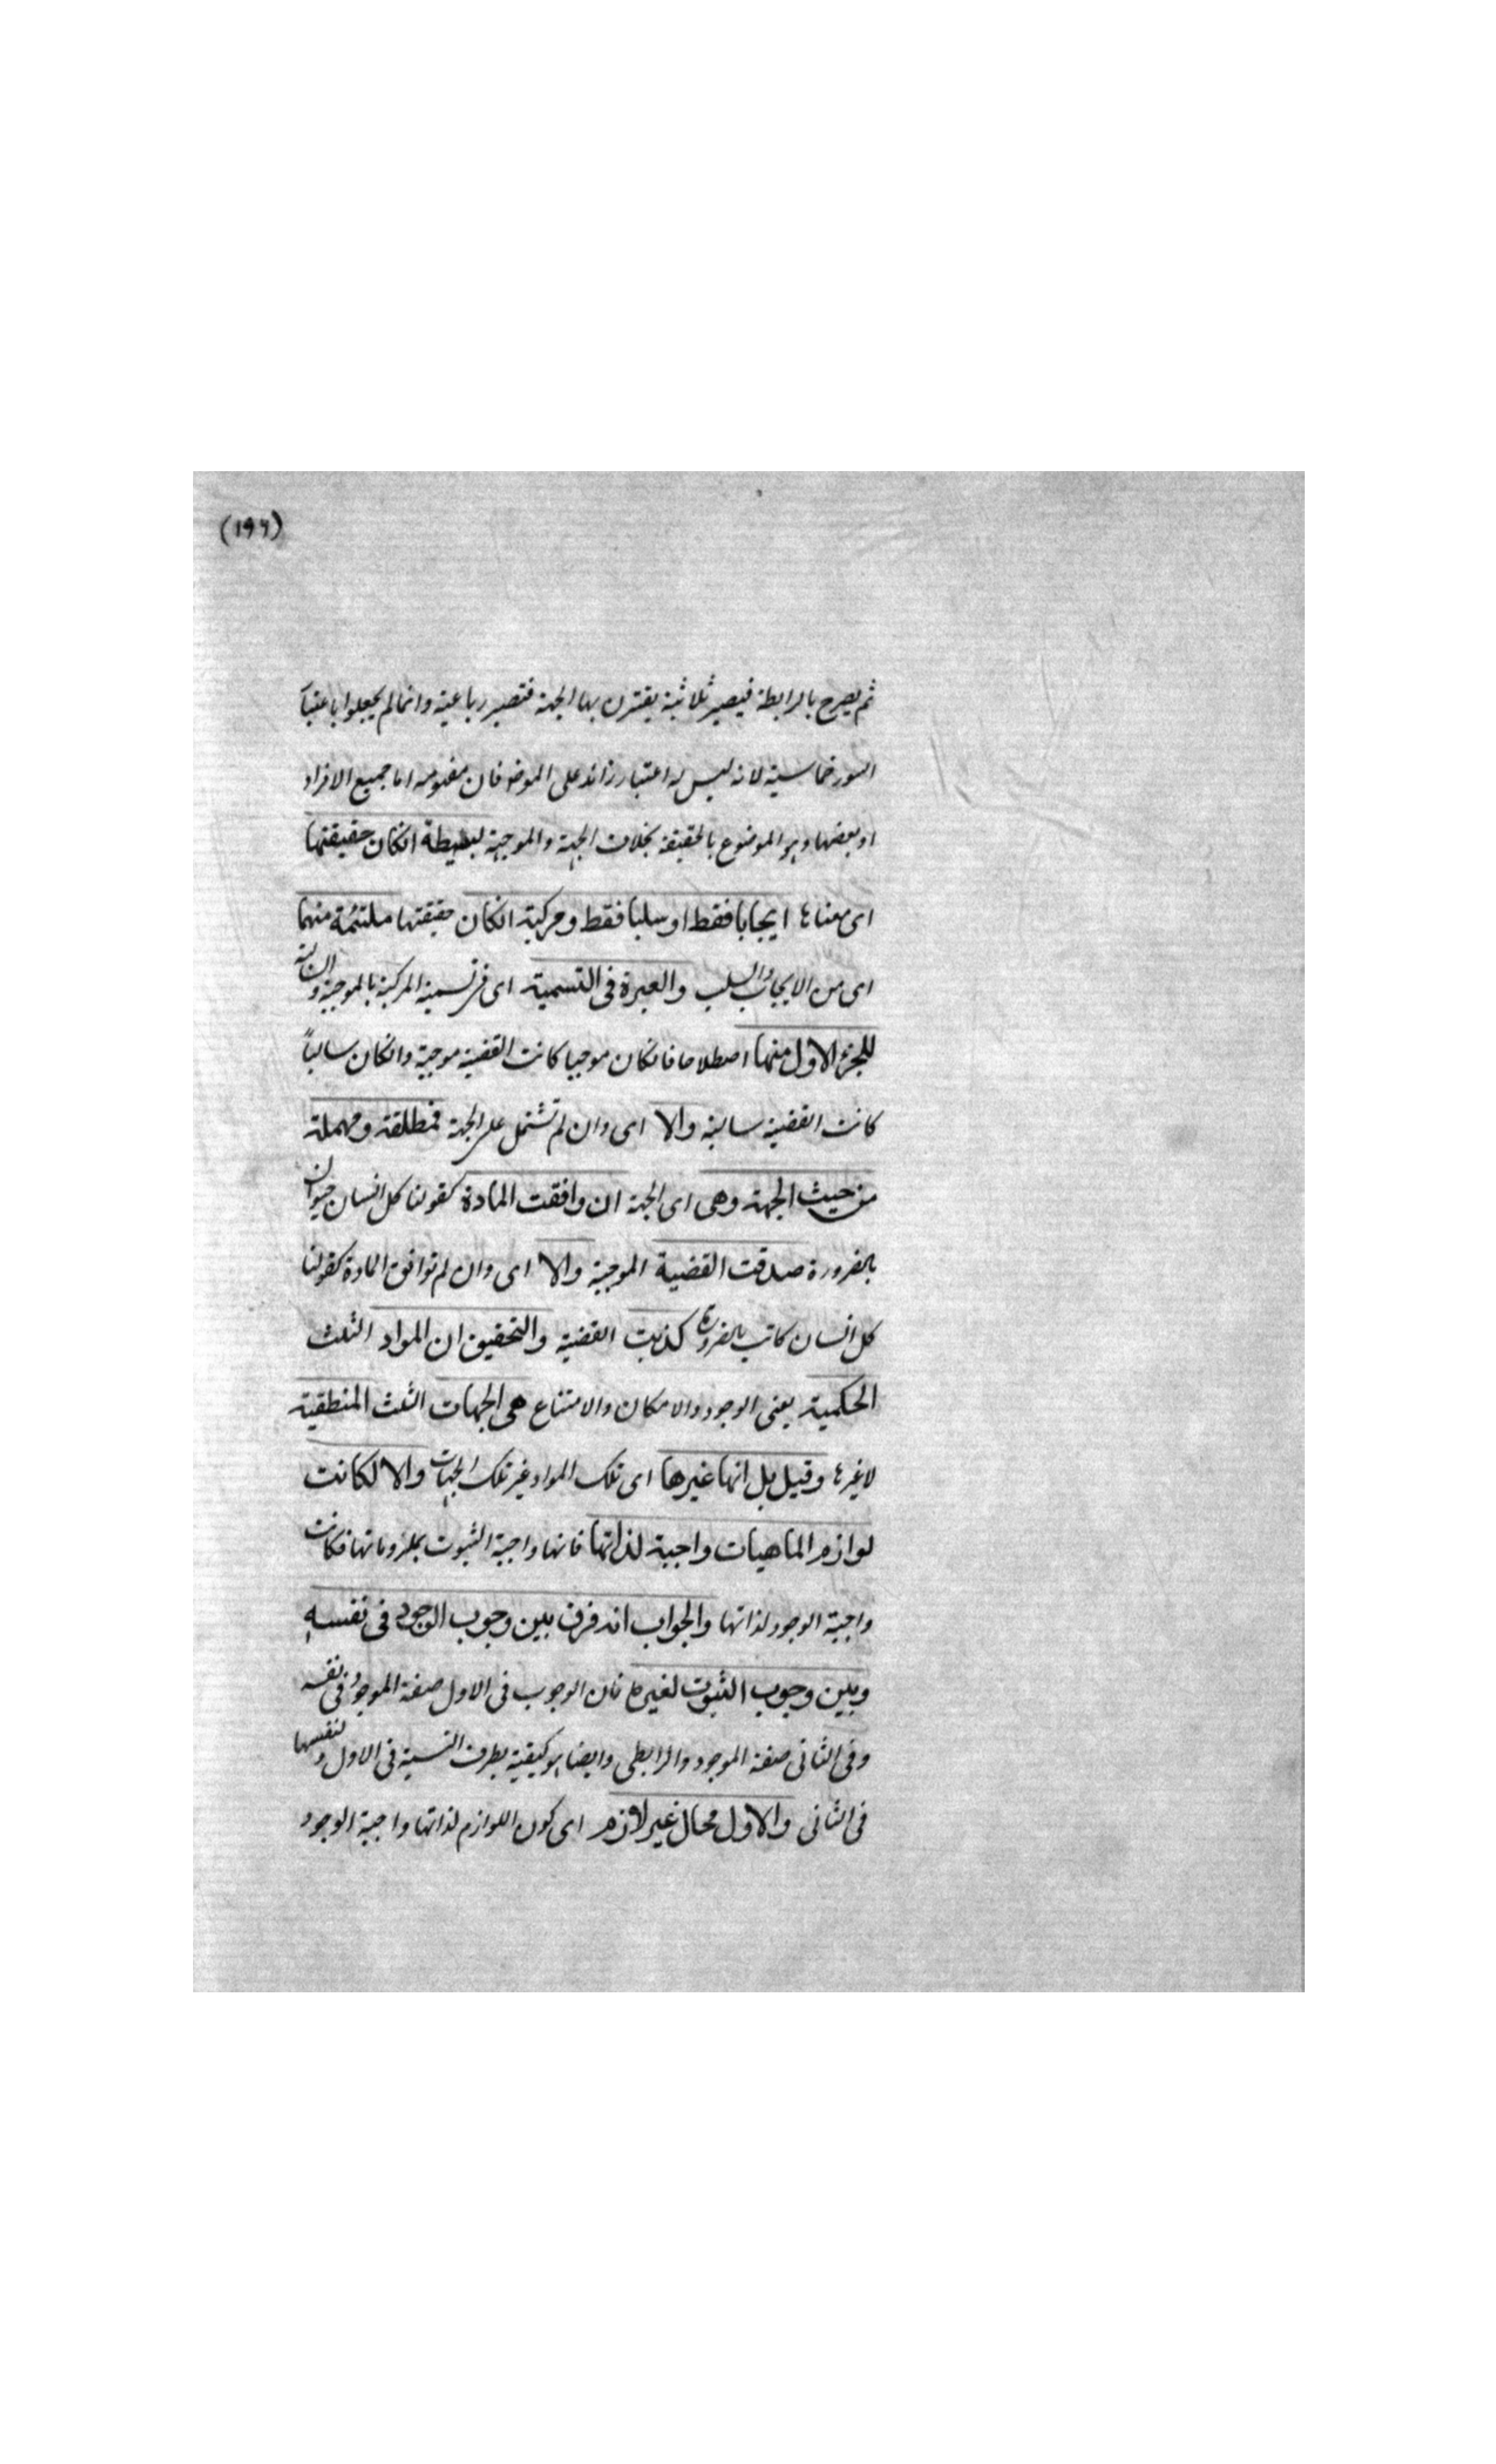 (١٩٦)
ثم يصرح بالرابطة فيصير ثلاثية يقترن بها الجهة فتصير رباعية وانما لم يجعلوا باعتبار
السور خماسية لانه ليس له اعتبار زائد على الموضوع فان مفهومه اما جميع الافراد
او بعضها وهو الموضوع بالحقيقة بخلاف الجهة والموجهة بسيطة انكان حقيقتها
اى معناها ايجابا فقط او سلبا فقط ومركبة انكان حقيقتها ملتئمة منهما
اى من الايجاب والسلب والعبرة فى التسمية اى فى تسمية المركبة بالموجبة والسالبة
للجزء الاول منهما اصطلاحا فانكان موجبا كانت القضية موجبة وانكان سالباً
كانت القضية سالبة والا اى وان لم تشتمل على الجهة فمطلقة ومهملة
من حيث الجهة وهى اى الجهة ان وافقت المادة كقولنا كل انسان حيوان
بالضرورة صدقت القضية الموجبة والا اى وان لم توافق المادة كقولنا
كل انسان كاتب بالضرورة كذبت القضية والتحقيق ان المواد الثلث
الحكمية يعنى الوجود والامكان والامتناع هى الجهات الثلث المنطقية
لا غيرها وقيل بل انها غيرها اى تلك المواد غير تلك الجهات والا لكانت
لوازم الماهيات واجبة لذاتها فانها واجبة الثبوت بملزوماتها فكانت
واجبة الوجود لذاتها والجواب انه فرق بين وجوب الوجود فى نفسه
وبين وجوب الثبوت لغيره فان الوجوب فى الاول صفة الموجود فى نفسه
وفى الثانى صفة الموجود والرابطى وايضا هو كيفية بطرف النسبة فى الاول ولنفسها
فى الثانى والاول محال غير لازم اى كون اللوازم لذاتها واجبة الوجود